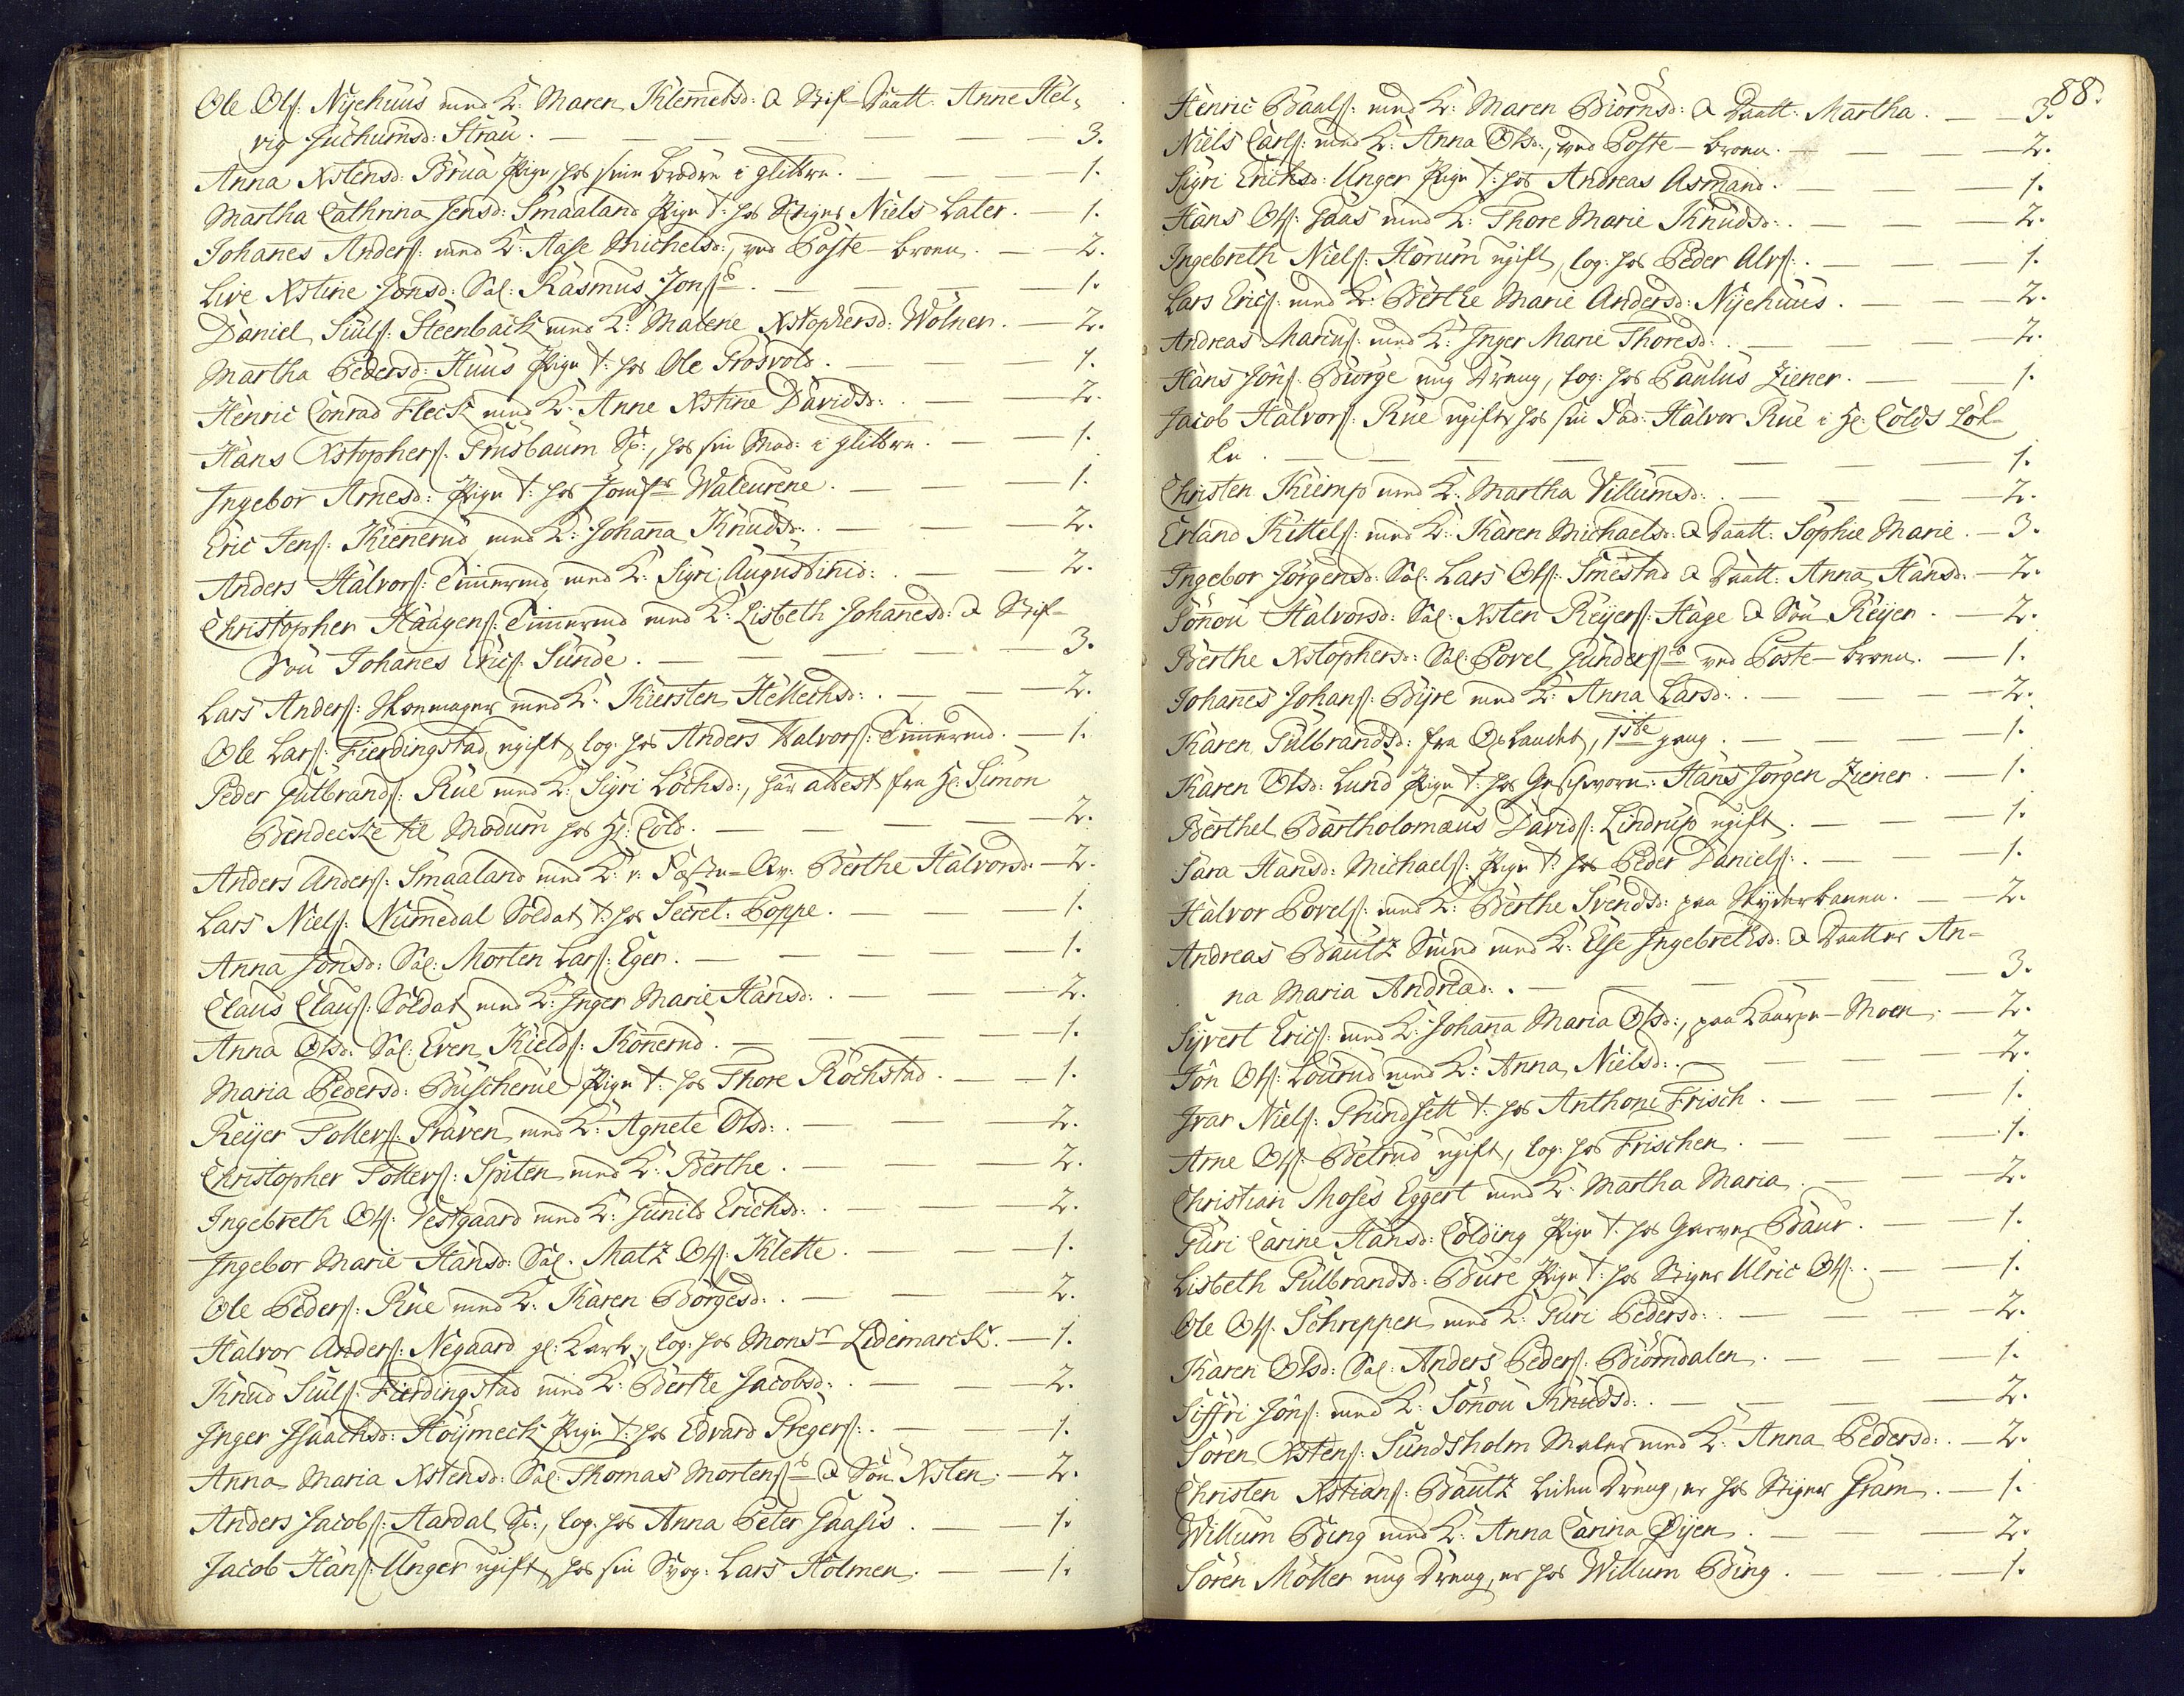 Ole Ols: Nyehuus med K: Maren Klemetsd: & Stif-Daatt: Anne Hel-
vig Juchumsd: Strau. — 3.
Anna Xstensd: Brua Pige, hos sine brødre i glittre. — 1.
Martha Cathrina Jensd: Smaaland Pige t: hos Stiger Niels Later. — 1.
Johanes Anders: med K: Aase Michelsd:, ved Poste-broen. — 2.
Live Xstine Jonsd: Sal: Rasmus Jons: — 1.
Daniel Siuls: Steenback med K: Malene Xstophersd: Wolner. — 2.
Martha Pedersd: Huus Pige t: hos Ole Grosvold. — 1.
Henric Conrad Fleck med K: Anne Xstine Davidsd: — 2.
Hans Xstophers: Grusbaum S:, hos sin Mod: i glittre. — 1.
Ingebor Arnesd: Pige t: hos Jomfr Waleurene. — 1.
Eric Jens: Kienerud med K: Johana Knudsd: — 2.
Anders Halvors: Timermd med K: Sigri Augustinid: — 2.
Christopher Haagens: Timermd med K: Lisbeth Johanesd: & Stif-
Søn Johanes Erics: Sunde. — 3.
Lars Anders: Skomager med K: Kiersten Hellechsd: — 2.
Ole Lars: Fierdingstad ugift, log: hos Anders Halvors: Timermd. — 1.
Peder Gulbrands: Rue med K: Sigri Lochsd:, har attest fra Hr: Simon
Bendecke til Modum hos Hr: Cold. — 2.
Anders Anders: Smaaland med K: v: Fæste-Qv: Berthe Halvorsd: — 2.
Lars Niels: Numedal Soldat t: hos Secret: Poppe. — 1.
Anna Jonsd: Sal: Morten Lars: Eger. — 1.
Claus Claus: Soldat med K: Inger Marie Hansd: — 2.
Anna Olsd: Sal: Even Kields: Konerud. — 1.
Maria Pedersd: Buscherue Pige t: hos Thore Rochstad. — 1.
Reyer Tollers: Praven med K: Agnete Olsd: — 2.
Christopher Tollers: Spiten med K: Berthe. — 2.
Ingebreth Ols: Vestgaard med K: Gunild Erichsd: — 2.
Ingebor Marie Hansd: Sal: Matz Ols: Klette. — 1.
Ole Peders: Rue med K: Karen Borgesd: — 2.
Halvor Anders: Negaard gl: Karl, log: hos Monsr Lidemarck. — 1.
Knud Siuls: Fierdingstad med K: Berthe Jacobsd: — 2.
Inger Isaachsd: Hoymeck Pige t: hos Edvard Gregers: — 1.
Anna Maria Xstensd: Sal: Thomas Mortens: & Søn Xsten. — 2.
Anders Jacobs: Aardal S:, log: hos Anna Peter Gaasis. — 1.
Jacob Hans: Unger ugift, hos sin Svog: Lars Holmen. — 1.
88.
Henric Paals: med K: Maren Biörnsd: & Daatt: Martha. — 3.
Niels Carls: med K: Anna Olsd:, ved Poste-broen. — 2.
Sigri Erichsd: Unger Pige t: hos Andreas Asmand. — 1.
Hans Ols: Gaas med K: Thore Marie Knudsd: — 2.
Ingebreth Niels: Horum ugift, log: hos Peder Alvs: — 1.
Lars Erics: med K: Berthe Marie Andersd: Nyehuus. — 2.
Andreas Marius: med K: Inger Marie Thoresd: — 2.
Hans Jons: Biorge ung Dreng, log: hos Paulus Ziener. — 1.
Jacob Halvors: Rue ugift hos sin Fad: Halvor Rue i Hr: Colds Løk-
ke. — 1.
Christen Kiemp med K: Martha Villumsd: — 2.
Erland Kittels: med K: Karen Michaelsd: & Daatt: Sophie Marie. — 3.
Ingebor Jorgensd: Sal: Lars Ols: Smestad & Daatt: Anna Hansd. — 2.
Sönou Halvorsd: Sal: Xsten Reyers: Hage & Søn Reyer. — 2.
Berthe Xstophersd: Sal: Povel Gunders: ved Poste-broen. — 1.
Johanes Johans: Byre med K: Anna Larsd: — 2.
Karen Gulbrandsd: fra Oplandet, 1ste gang. — 1.
Karen Olsd: Lund Pige t: hos Geschworn: Hans Jorgen Ziener. — 1.
Berthel Bartholomæus Davids: Lindrup ugift. — 1.
Sara Hansd: Michaels: Pige t: hos Peder Daniels: — 1.
Halvor Povels: med K: Berthe Svendsd: paa Skyderbanen. — 2.
Andreas Bautz Smed med K: Else Ingebrethsd: & Daatter An-
na Maria Andread: — 3.
Syvert Erics: med K: Johana Maria Olsd:, paa Laurpe-Moen. — 2.
Jon Ols: Lourud med K: Anna Nielsd: — 2.
Ivar Niels: Grundsett t: hos Anthoni Frisch. — 1.
Arne Ols: Betrud ugift, log: hos Frischen. — 1.
Christian Moses Eggert med K: Martha Maria. — 2.
Guri Carine Hansd: Colding Pige t: hos Garver Baur. — 1.
Lisbeth Gulbrandsd: Bure Pige t: hos Stiger Ulric Ols: — 1.
Ole Ols: Schreppen med K: Guri Pedersd: — 2.
Karen Olsd: Sal: Anders Peders: Biörndalen. — 1.
Siffri Jons: med K: Sönou Knudsd: — 2.
Sören Xstens: Sundsholm Maler med K: Anna Pedersd: — 2.
Christen Xstians: Bautz liden Dreng, er hos Stiger Gram. — 1.
Willum Bing med K: Anna Carina Øyen. — 2.
Sören Möller ung Dreng, er hos Willum Bing. — 1.